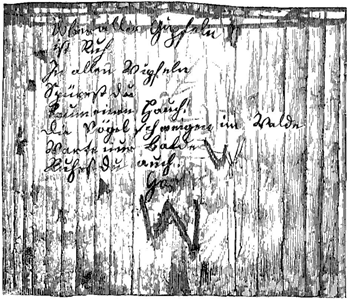 Über allen Gipfeln
ist Ruh
In allen Wipfeln
Spürest du
Kaum einen Hauch!
Die Vögel schweigen im Walde
Warte nur Balde W
Ruhest du auch.
W